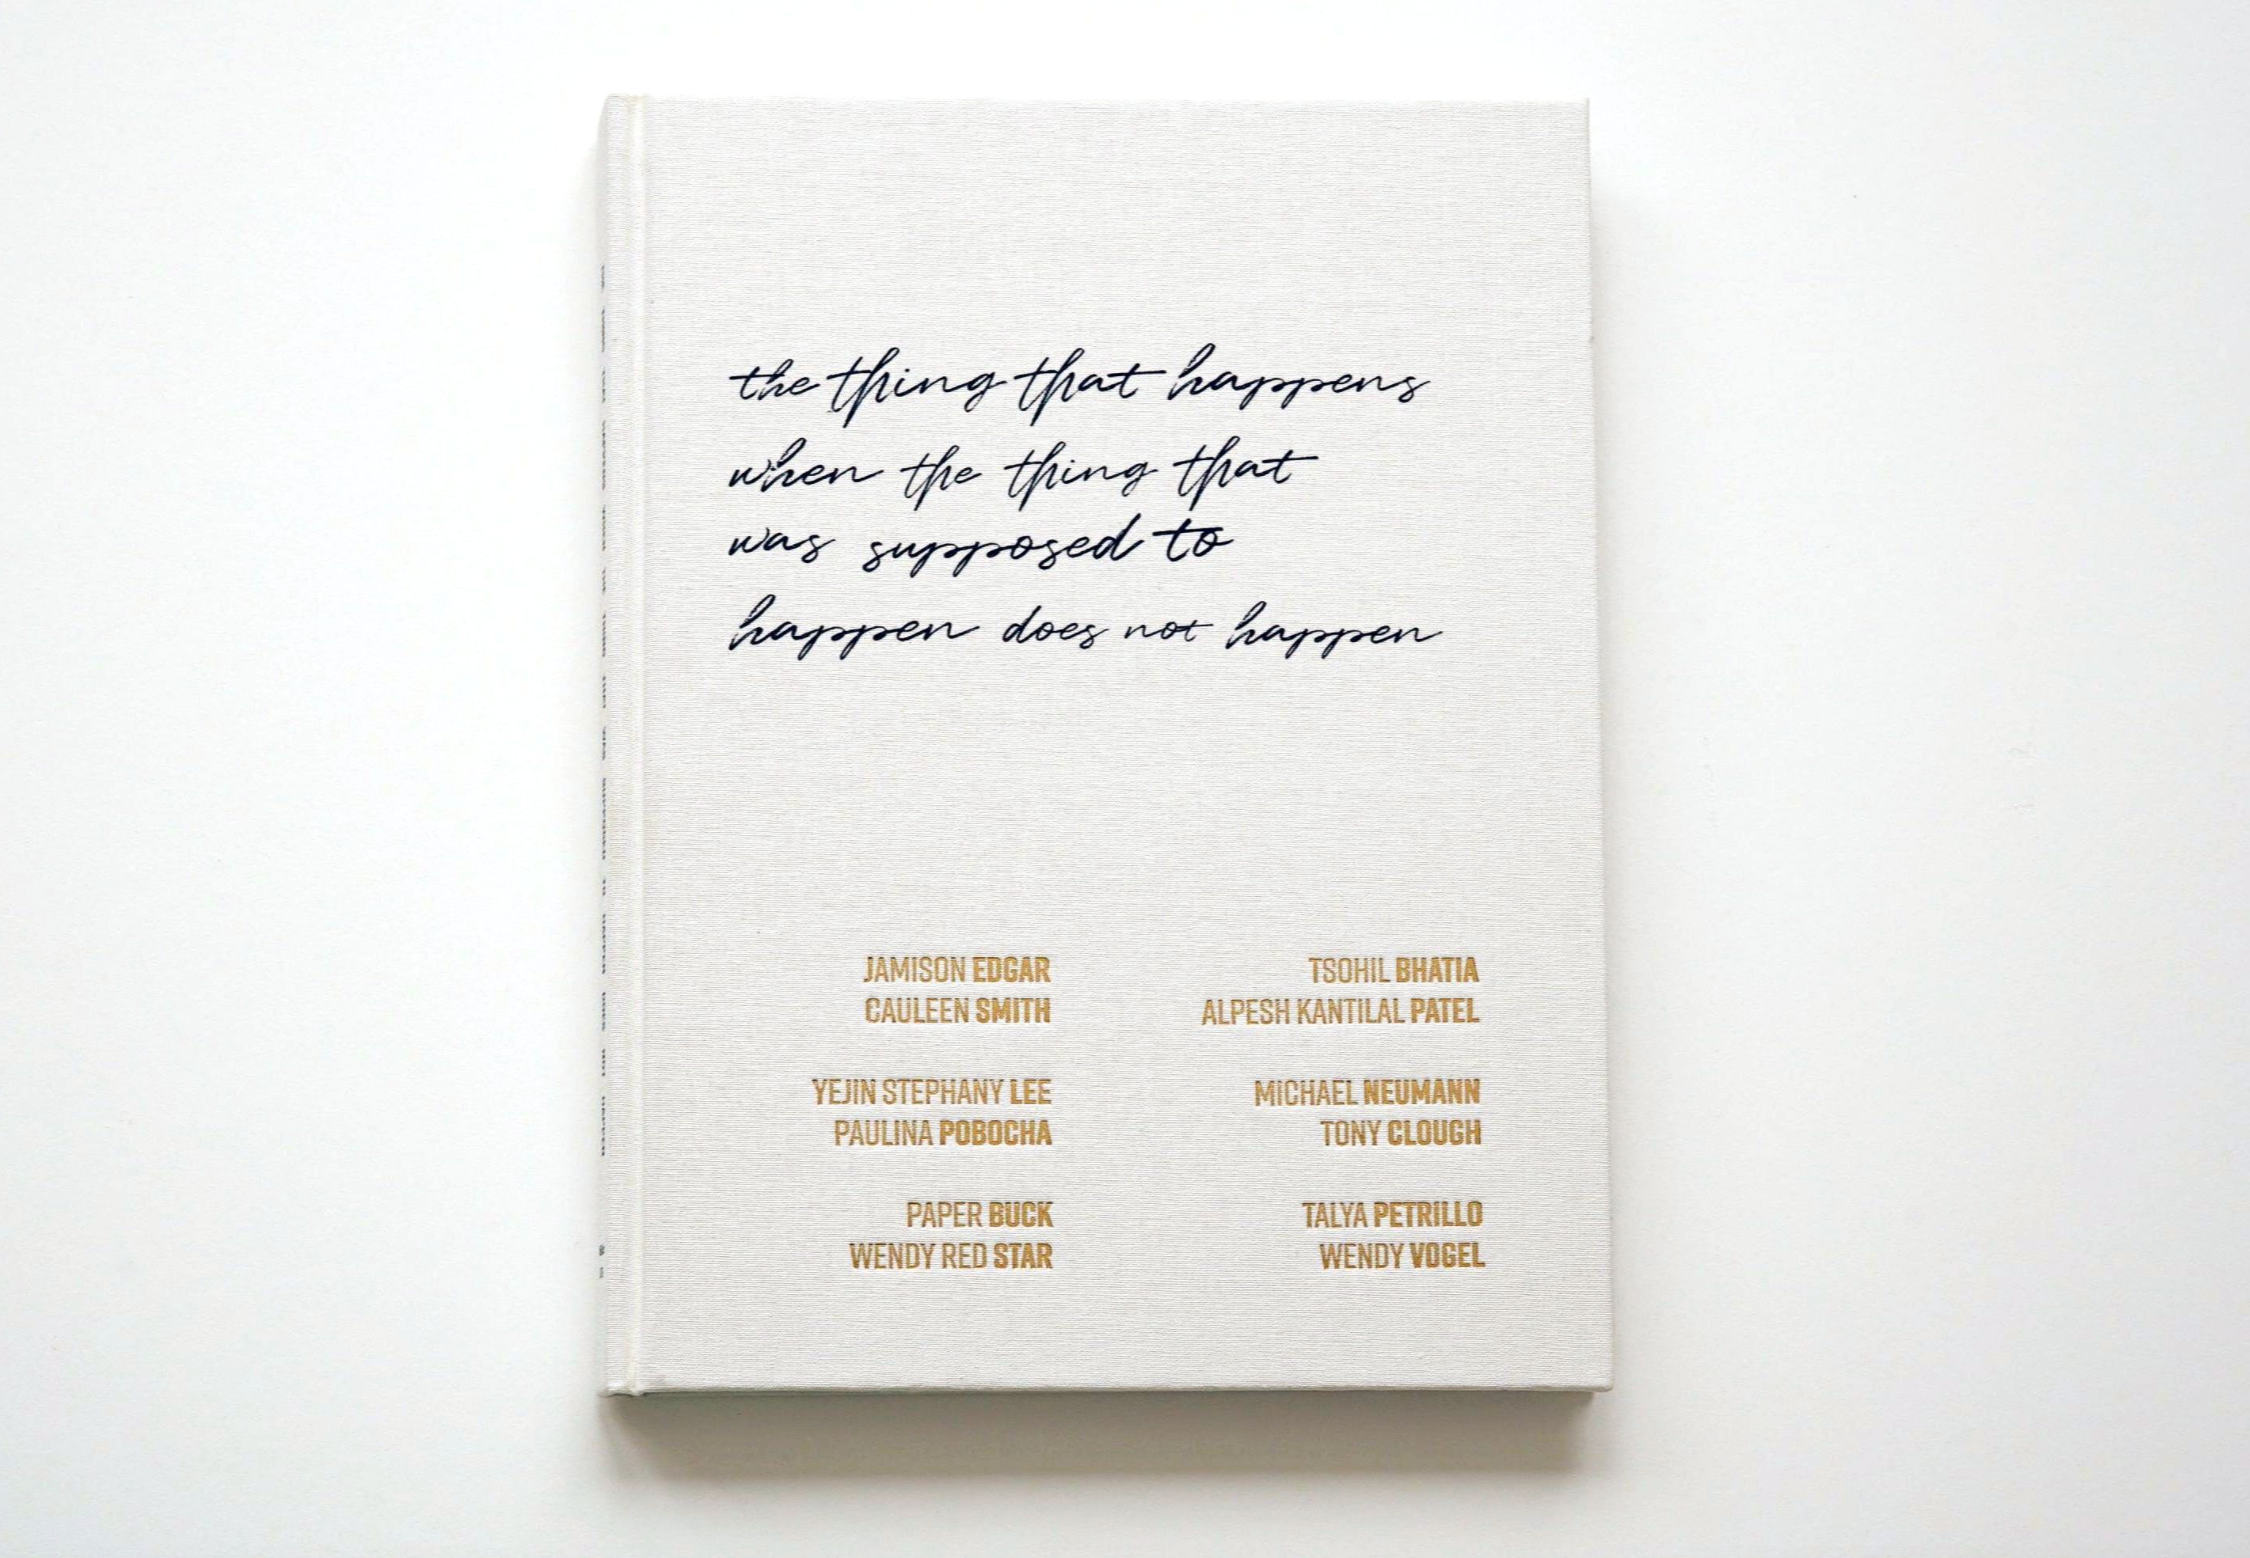 the thing that happens
when the thing that
was supposed to
happen does not happen
JAMISON EDGAR
CAULEEN SMITH
YEJIN STEPHANY LEE
PAULINA POBOCHA
PAPER BUCK
WENDY RED STAR
TSOHIL BHATIA
ALPESH KANTILAL PATEL
MICHAEL NEUMANN
TONY CLOUGH
TALYA PETRILLO
WENDY VOGEL